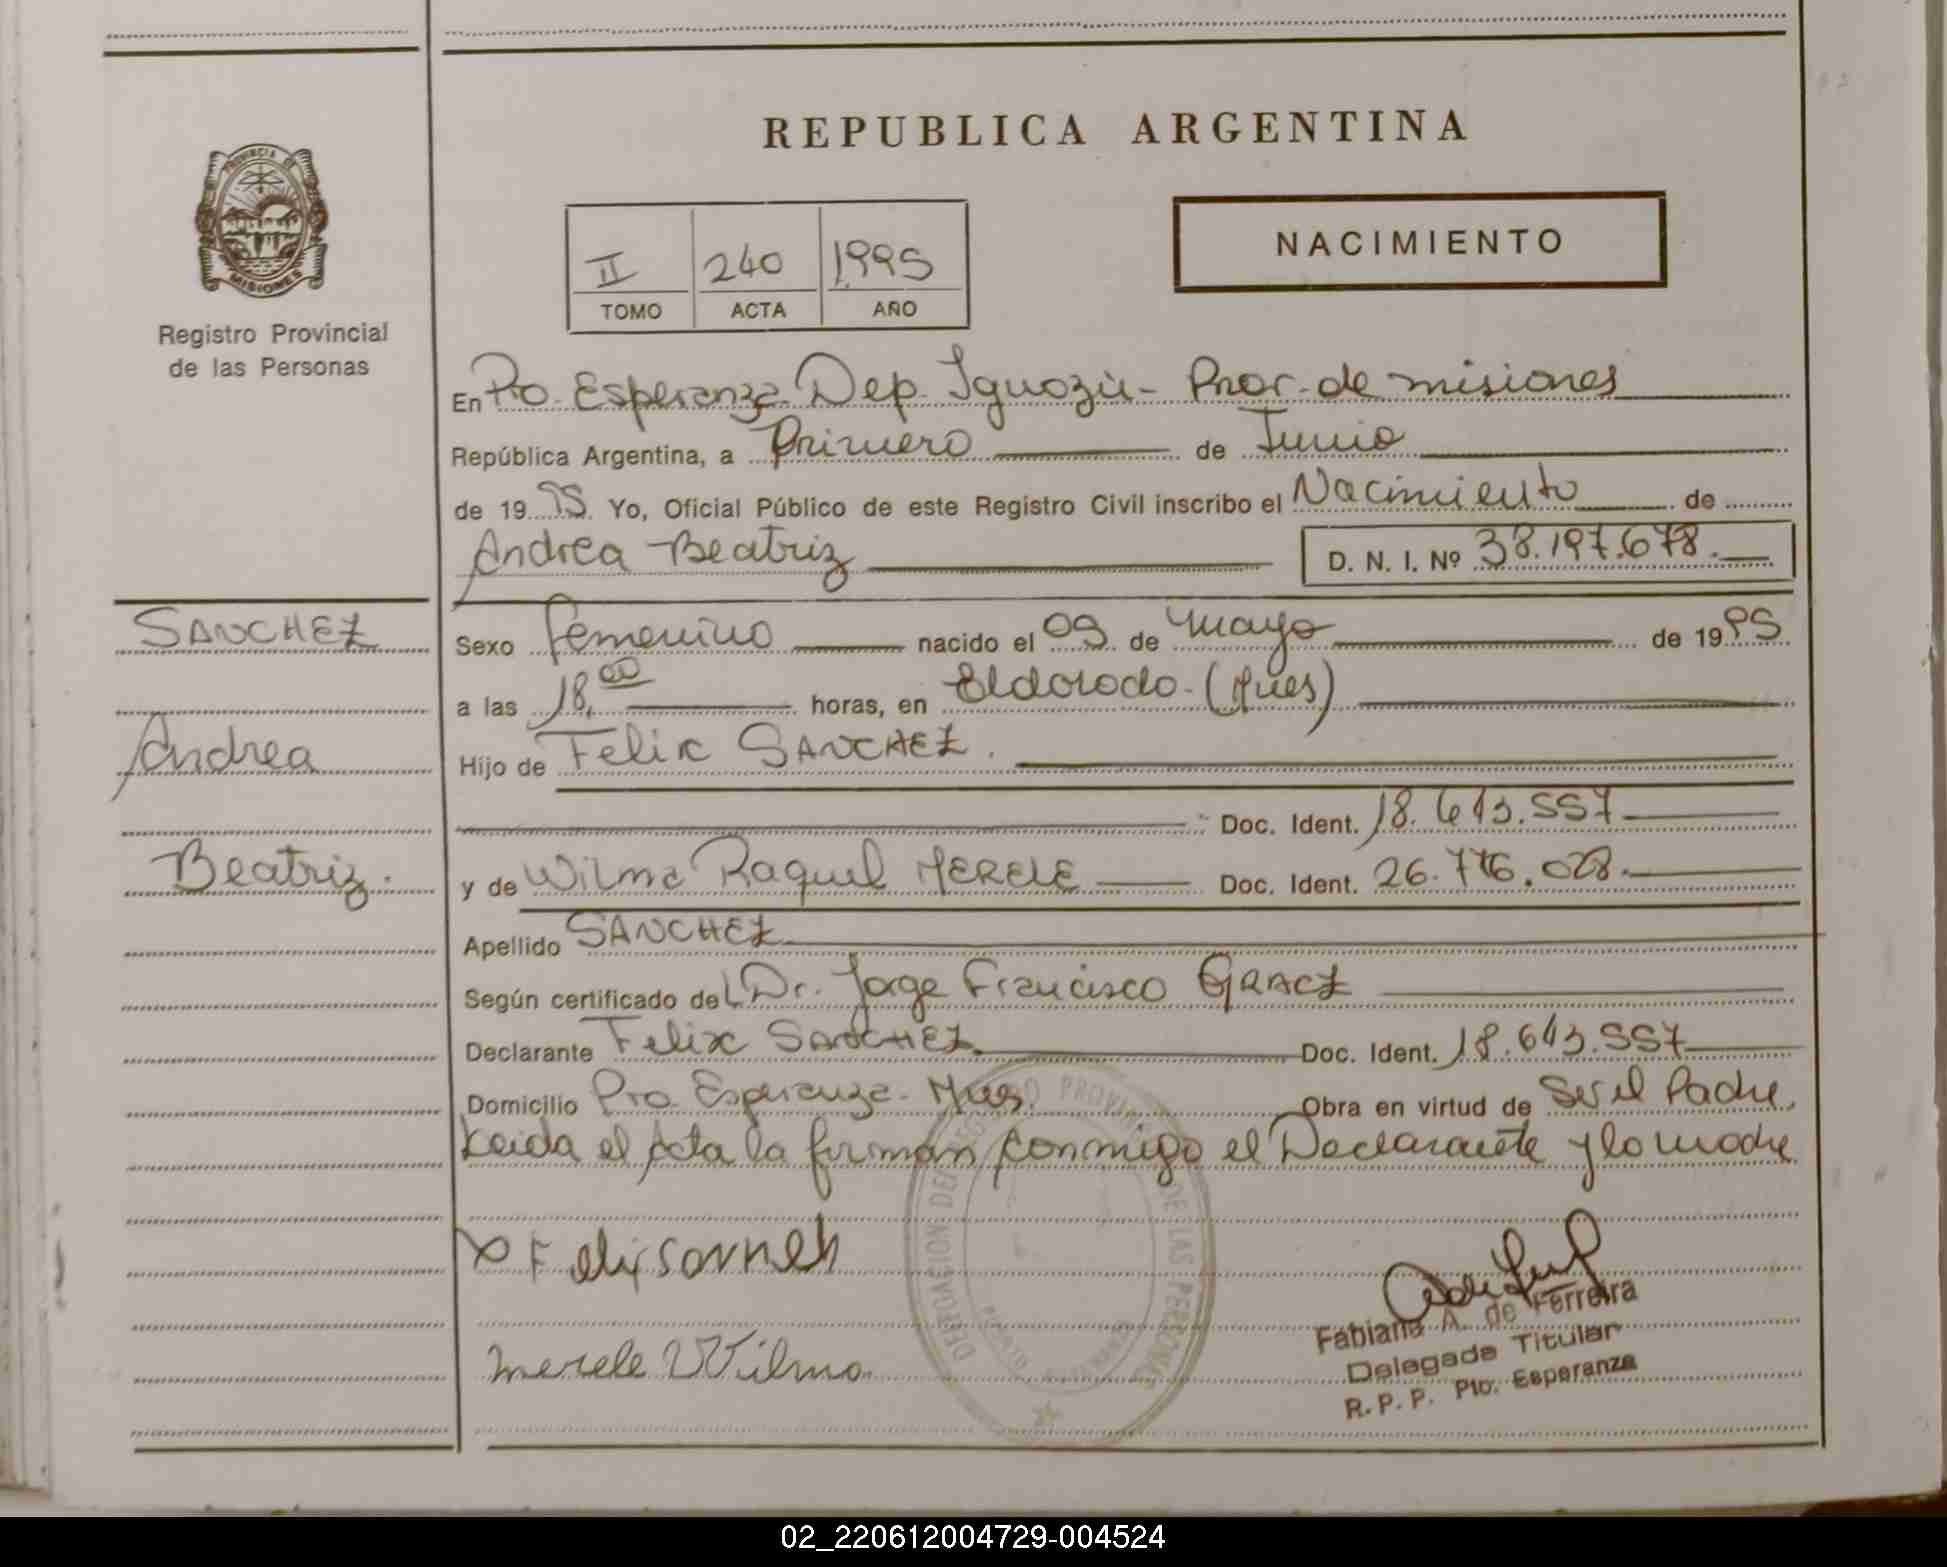 REPUBLICA ARGENTINA
PROVINCIA DE
MISIONES
Registro Provincial
de las Personas
II 240 1995
TOMO ACTA AÑO
NACIMIENTO
En Pto. Esperanza Dep. Iguazú - Prov. de misiones
República Argentina, a Primero de Junio
de 19 95 Yo, Oficial Público de este Registro Civil inscribo el Nacimiento de
Andrea Beatriz D. N. I. Nº 38.197.678.
SANCHEZ
Andrea
Beatriz.
Sexo femenino nacido el 09 de mayo de 19 95
a las 18,00 horas, en Eldorado - (Mnes)
Hijo de Felix SANCHEZ.
Doc. Ident. 18.643.557
y de Wilma Raquel MERELE Doc. Ident. 26.776.028.
Apellido SANCHEZ
Según certificado del Dr. Jorge Francisco
Declarante Felix SANCHEZ Doc. Ident. 18.643.557
Domicilio Pto. Esperanza - Mnes. Obra en virtud de Ser el Padre.
Leida el Acta la firman conmigo el Declarante y la madre
Merele Wilma
DELEGACION DEL REGISTRO PROVINCIAL DE LAS PERSONAS
PUERTO ESPERANZA
Fabiana A. de Ferreira
Delegada Titular
R. P. P. Pto. Esperanza
02_220612004729-004524